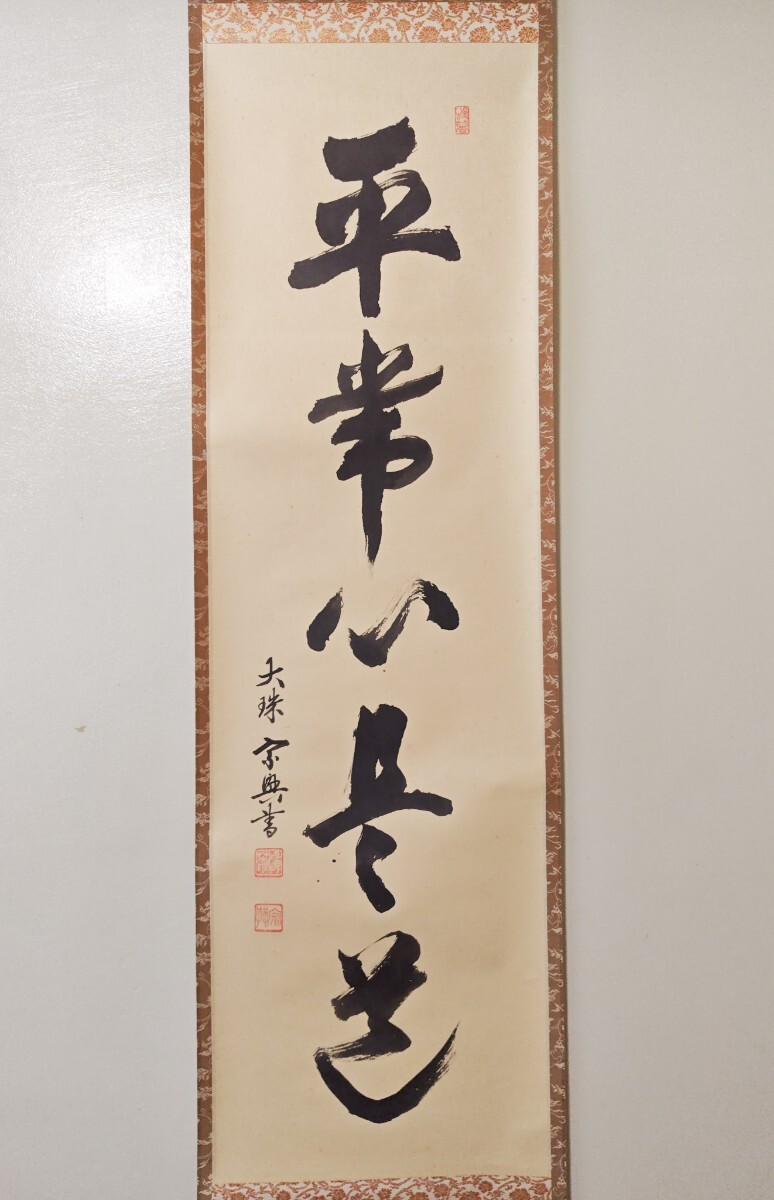 平常心是道
大珠宗興書